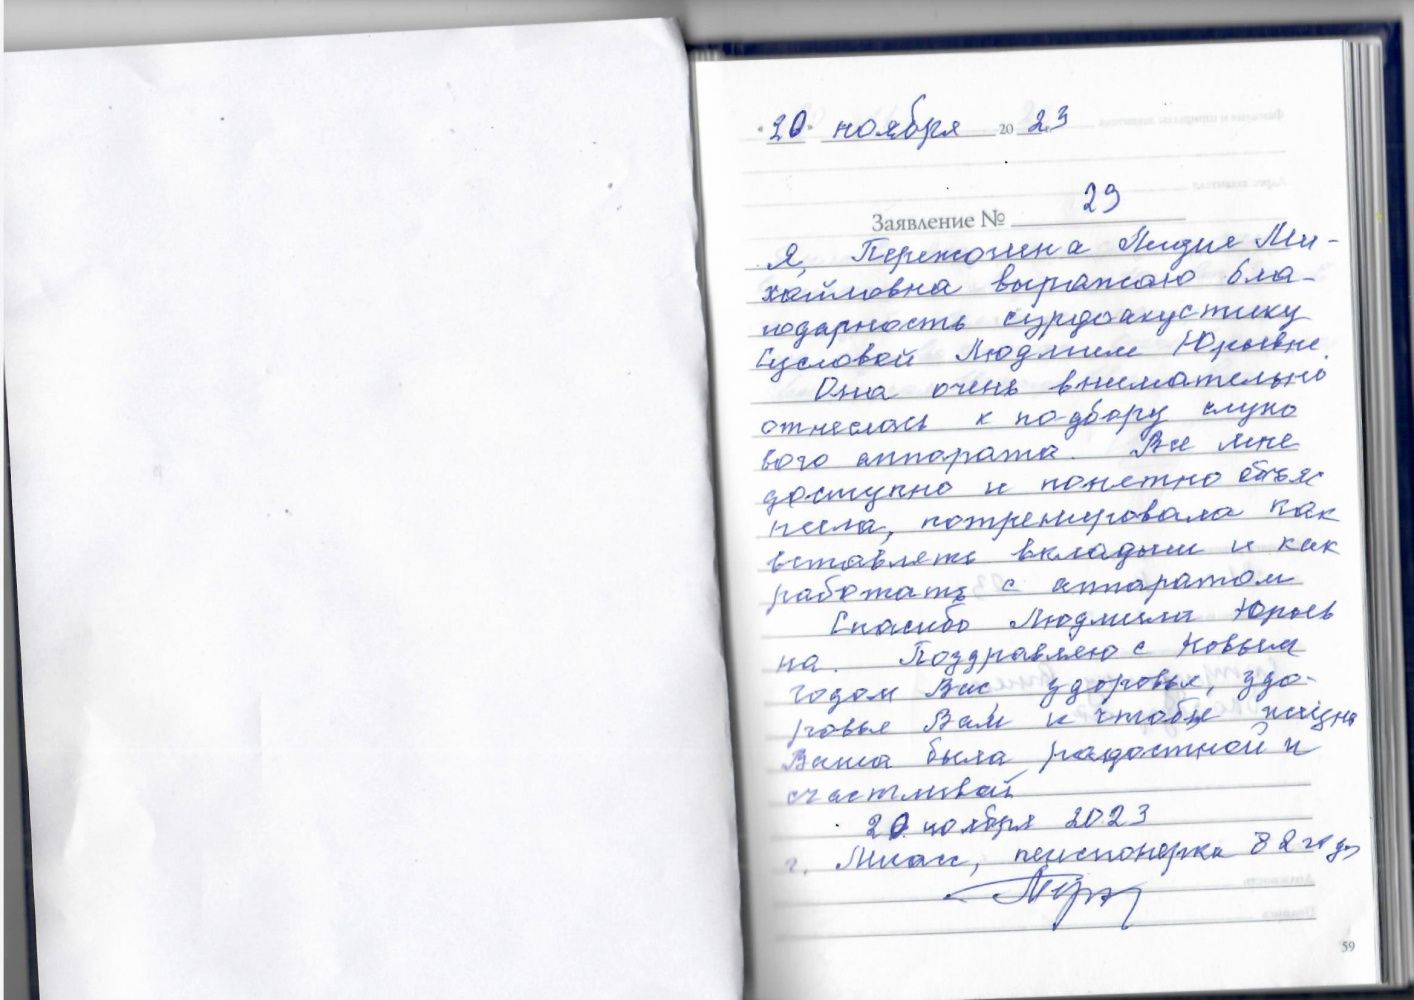 "20" ноября 2023
Заявление № 29
Я, Пережогина Лидия Ми-
хайловна выражаю бла-
годарность сурдоакустику
Сусловой Людмиле Юрьевне.
Она очень внимательно
отнеслась к подбору слухо
вого аппарата. Все мне
доступно и понятно объяс
нила, потренировала как
вставлять вкладыш и как
работать с аппаратом
Спасибо Людмила Юрьев
на. Поздравляю с Новым
годом Вас здоровья, здо-
ровья Вам и чтобы жизнь
Ваша была радостной и
счастливой
20 ноября 2023
г. Миасс, пенсионерка 82 года
59